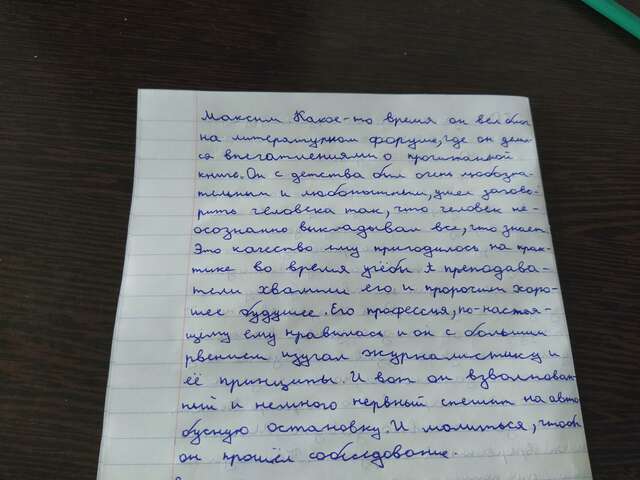 Максим Какое-то время он вёл блог
на литературном форуме, где он дели-
ся впечатлениями о прочитанной
книге. Он с детства был очень любозна-
тельным и любопытным, умел загово-
рить человека так, что человек не-
осознанно выкладывал все, что знает.
Это качество ему пригодилось на прак-
тике во время учёбы преподава-
тели хвалили его и пророчили хоро-
шее будущее. Его профессия, по-настоя-
щему ему нравилась и он с большим
рвением изучал журналистику и
её принципы. И вот он взволнован-
ный и немного нервный спешит на авто
бусную остановку. И молиться, чтобы
он прошёл собеседование.